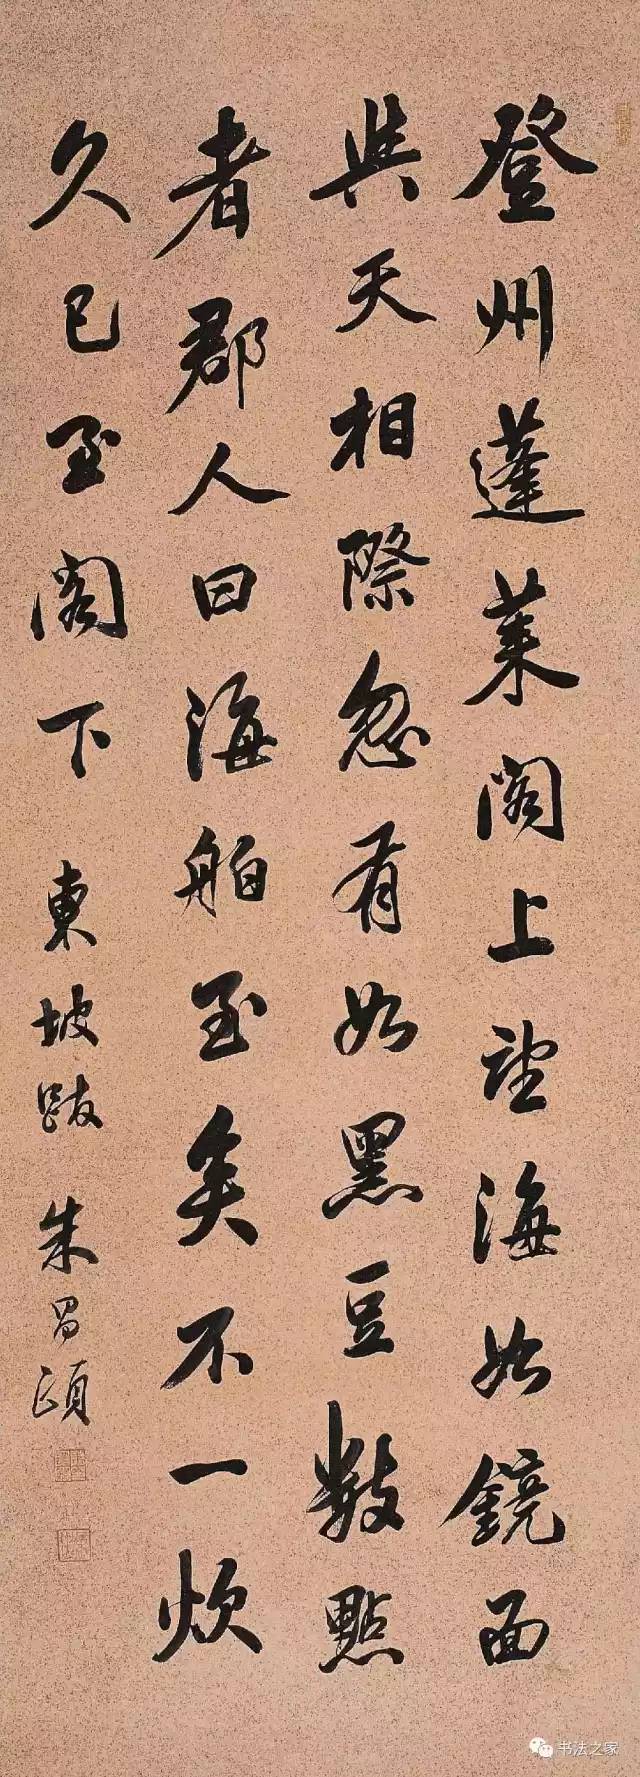 登州蓬莱阁上望海如鏡面
與天相際忽有如黑豆數點
者郡人曰海舶至矣不一炊
久已至阁下 東坡跋 朱昌頤
书法之家